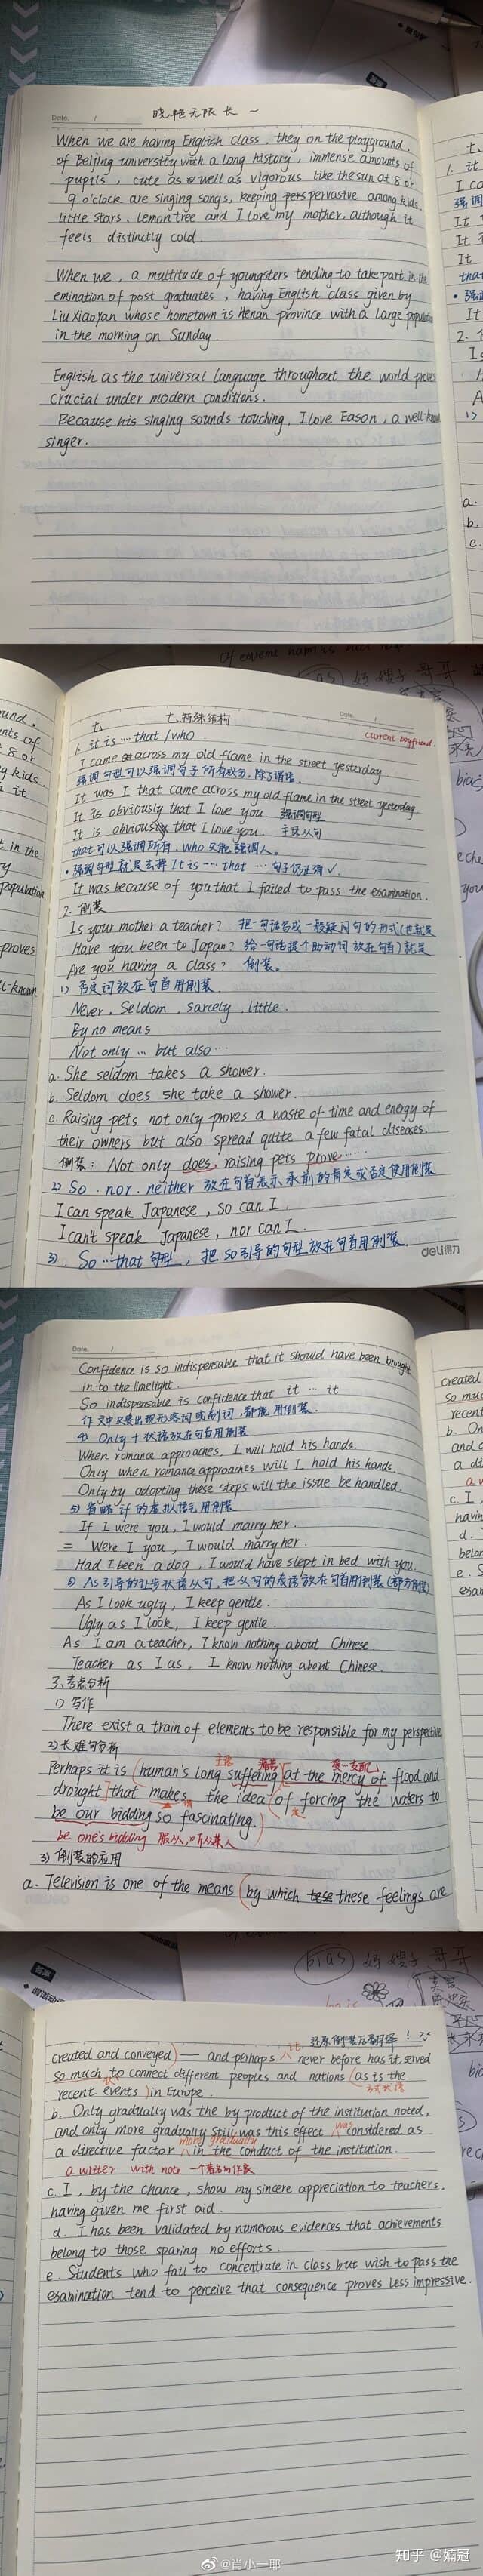 Date. /
晓艳无限长~
When we are having English class, they on the playground,
of Beijing university with a long history, immense amounts of
pupils, cute as well as vigorous like the sun at 8 or
9 o'clock are singing songs, keeping pervasive among kids
little stars, lemon tree and I love my mother, although it
feels distinctly cold.
When we, a multitude of youngsters tending to take part in the
emination of post graduates, having English class given by
Liu Xiao yan whose hometown is Henan province with a large population
in the morning on Sunday.
English as the universal language throughout the world proves
crucial under modern conditions.
Because his singing sounds touching, I love Eason, a well-known
singer.
七、特殊结构
Date.
1. it is … that / who
current boyfriend.
I came across my old flame in the street yesterday
强调句型可以强调句子所有成分，除了谓语。
It was I that came across my old flame in the street yesterday.
It is obviously that I love you 强调句型
It is obvious that I love you. 主语从句
that可以强调所有，who只能强调人。
•强调句型就是去掉It is … that … 句子仍正确✓.
It was because of you that I failed to pass the examination.
2. 倒装
Is your mother a teacher? 把一句话写成一般疑问句的形式(也就是
Have you been to Japan? 给一句话提个助动词放在句首)就是
Are you having a class? 倒装。
1) 否定词放在句首用倒装
Never, Seldom, sarcely, little.
By no means
Not only … but also …
a. She seldom takes a shower.
b. Seldom does she take a shower.
c. Raising pets not only proves a waste of time and energy of
their owners but also spread quite a few fatal diseases.
倒装: Not only does raising pets prove ……
2) So, nor, neither 放在句首表示承前的肯定或否定使用倒装
I can speak Japanese, so can I.
I can't speak Japanese, nor can I.
3). So … that 句型，把so引导的句型放在句首用倒装.
deli得力
Date. /
Confidence is so indispensable that it should have been brought
in to the limelight.
So indispensable is confidence that it … it
作文中只要出现形容词或副词，都能用倒装.
4) Only + 状语放在句首用倒装
When romance approaches, I will hold his hands.
Only when romance approaches will I hold his hands.
Only by adopting these steps will the issue be handled.
5) 省略if的虚拟语气用倒装
If I were you, I would marry her.
= Were I you, I would marry her.
Had I been a dog, I would have slept in bed with you.
6) As引导的让步状语从句，把从句的表语放在句首用倒装(部分倒装)
As I look ugly, I keep gentle.
Ugly as I look, I keep gentle.
As I am a teacher, I know nothing about Chinese.
Teacher as I as, I know nothing about Chinese.
3、考点分析
1) 写作
There exist a train of elements to be responsible for my perspective
2) 长难句分析
Perhaps it is (human's long suffering at the mercy of flood and
drought] that makes the idea (of forcing the waters to
be our bidding so fascinating.)
be one's bidding 服从，听从某人
3) 倒装的应用
a. Television is one of the means (by which these feelings are
还原倒装后翻译!
created and conveyed) — and perhaps never before has it served
so much to connect different peoples and nations (as is the
recent events) in Europe.
b. Only gradually was the by product of the institution noted,
and only more gradually still was this effect was considered as
a directive factor more gradually in the conduct of the institution.
a writer with note 一个著名的作家
c. I, by the chance, show my sincere appreciation to teachers,
having given me first aid.
d. I has been validated by numerous evidences that achievements
belong to those sparing no efforts.
e. Students who fail to concentrate in class but wish to pass the
examination tend to perceive that consequence proves less impressive.
@肖小一耶
知乎 @婻冠